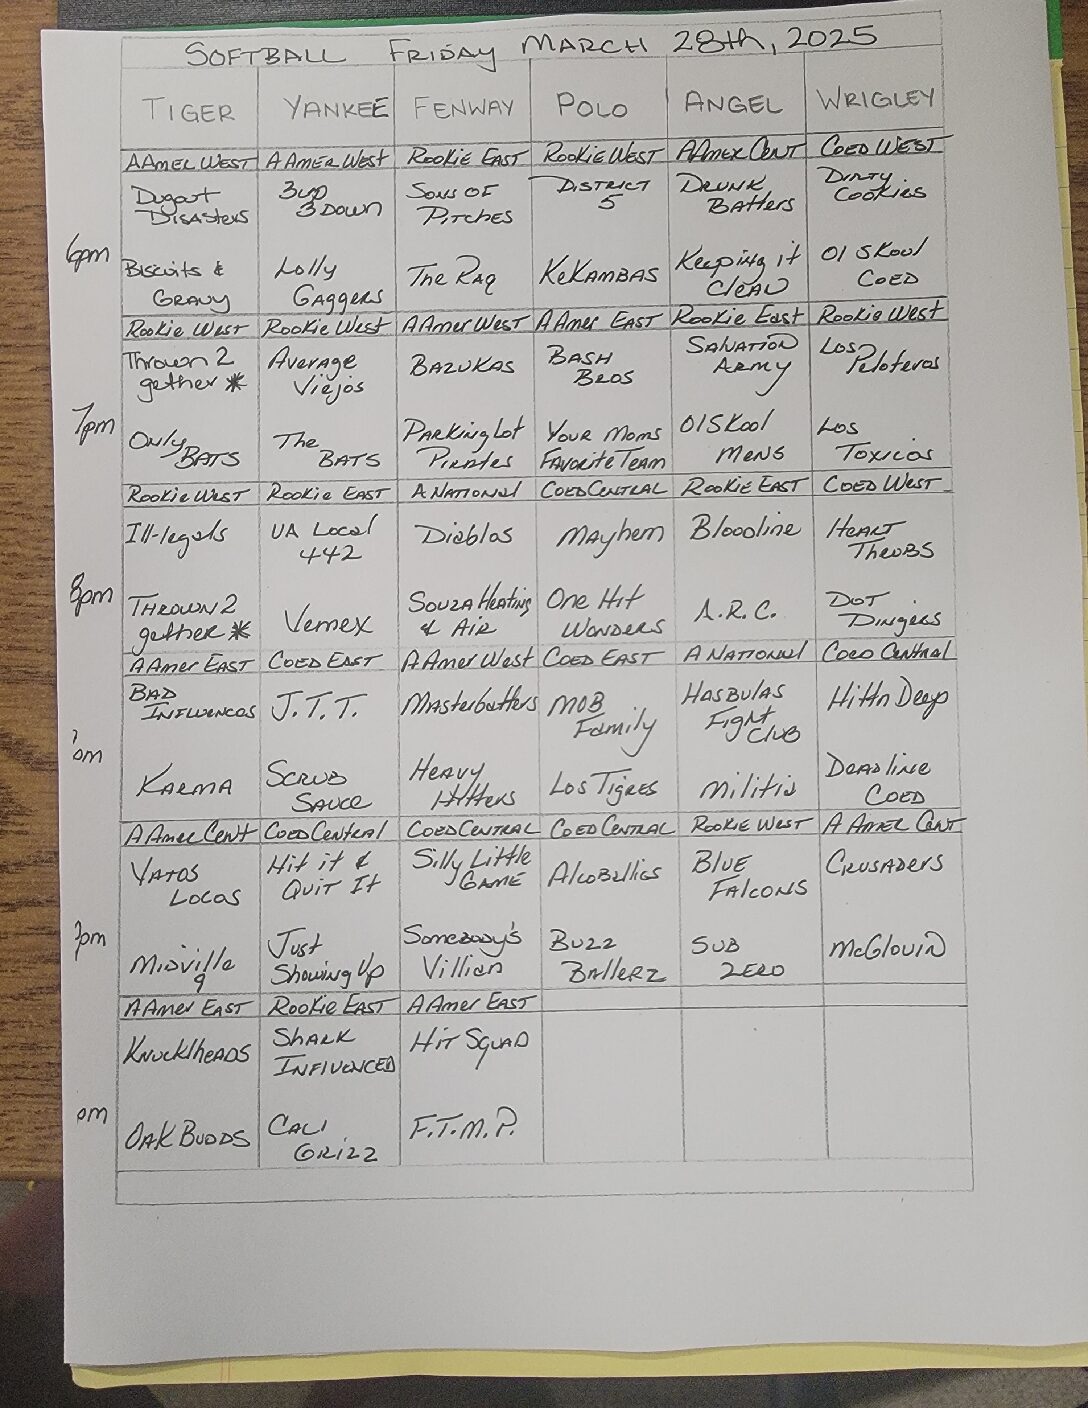 SOFTBALL FRIDAY MARCH 28th, 2025
TIGER YANKEE FENWAY POLO ANGEL WRIGLEY
A AMER WEST A AMER WEST ROOKIE EAST ROOKIE WEST A AMER CENT COED WEST
Dugout 3 up SONS OF DISTRICT DRUNK DIRTY
DISASTERS 3 DOWN PITCHES 5 BATTERS COOKIES
6pm
BISCUITS & Lolly The RAQ KEKAMBAS KEEPING it Ol SKool
GRAVY GAGGERS CLEAN COED
ROOKIE WEST ROOKIE WEST A AMER WEST A AMER EAST ROOKIE EAST ROOKIE WEST
Thrown 2 Average BAZUKAS BASH SALVATION LOS
gether * Viejos BROS ARMY Peloteros
7pm
Only The PARKING LOT YOUR MOMS Ol SKool LOS
BATS BATS PIRATES FAVORITE TEAM MENS TOXICOS
ROOKIE WEST ROOKIE EAST A NATIONAL COED CENTRAL ROOKIE EAST COED WEST
Ill-legals UA Local Diablos MAyhem Bloodline HEART
442 THROBS
8pm
THROWN 2 Vemex SOUZA HEATING ONE HIT A.R.C. DOT
gether * & AIR WONDERS DINGERS
A AMER EAST COED EAST A AMER WEST COED EAST A NATIONAL COED CENTRAL
BAD J.T.T. MASterbatters MOB HASBULAS HITTN DEEP
INFLUENCOS Family FIGHT
CLUB
pm
KARMA SCRUB HEAVY LOS TIGRES MILITIA DEADLINE
SAUCE HITTERS COED
A AMER CENT COED CENTRAL COED CENTRAL COED CENTRAL ROOKIE WEST A AMER CENT
VATOS Hit it & Silly Little AlcoBallics BLUE CRUSADERS
LOCOS QUIT It GAME FALCONS
pm
MIDVILLE Just Somebody's BUZZ SUB McGLOVIN
9 Showing Up Villian BALLERZ ZERO
A AMER EAST ROOKIE EAST A AMER EAST
KNUCKLHEADS SHARK HIT SQUAD
INFLUENCED
pm
OAK BUDDS CALI F.T.M.P.
GRIZZ